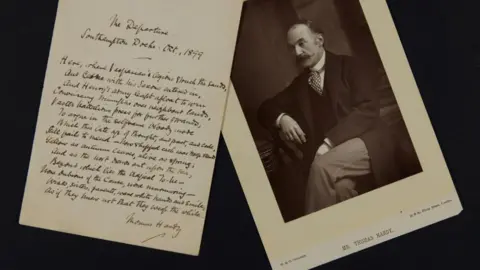 The Departure
Southampton Docks: Oct., 1899
Here, where Vespasian's legions struck the sands,
And Cerdic with his Saxons entered in,
And Henry's army leapt afloat to win
Convincing triumphs over neighbour lands,
Vaster battalions press for further strands,
To argue in the selfsame bloody mode
Which this late age of thought, and pact, and code,
Still fails to mend. Now
Yellow as autumn leaves, alive as spring;
And as each host draws out upon the sea
Beyond which lies the tragical To-be
None dubious of the cause, none murmuring,
Wives, sisters, parents, wave white hands and smile,
As if they knew not that they weep the while.
Thomas Hardy
MR. THOMAS HARDY.